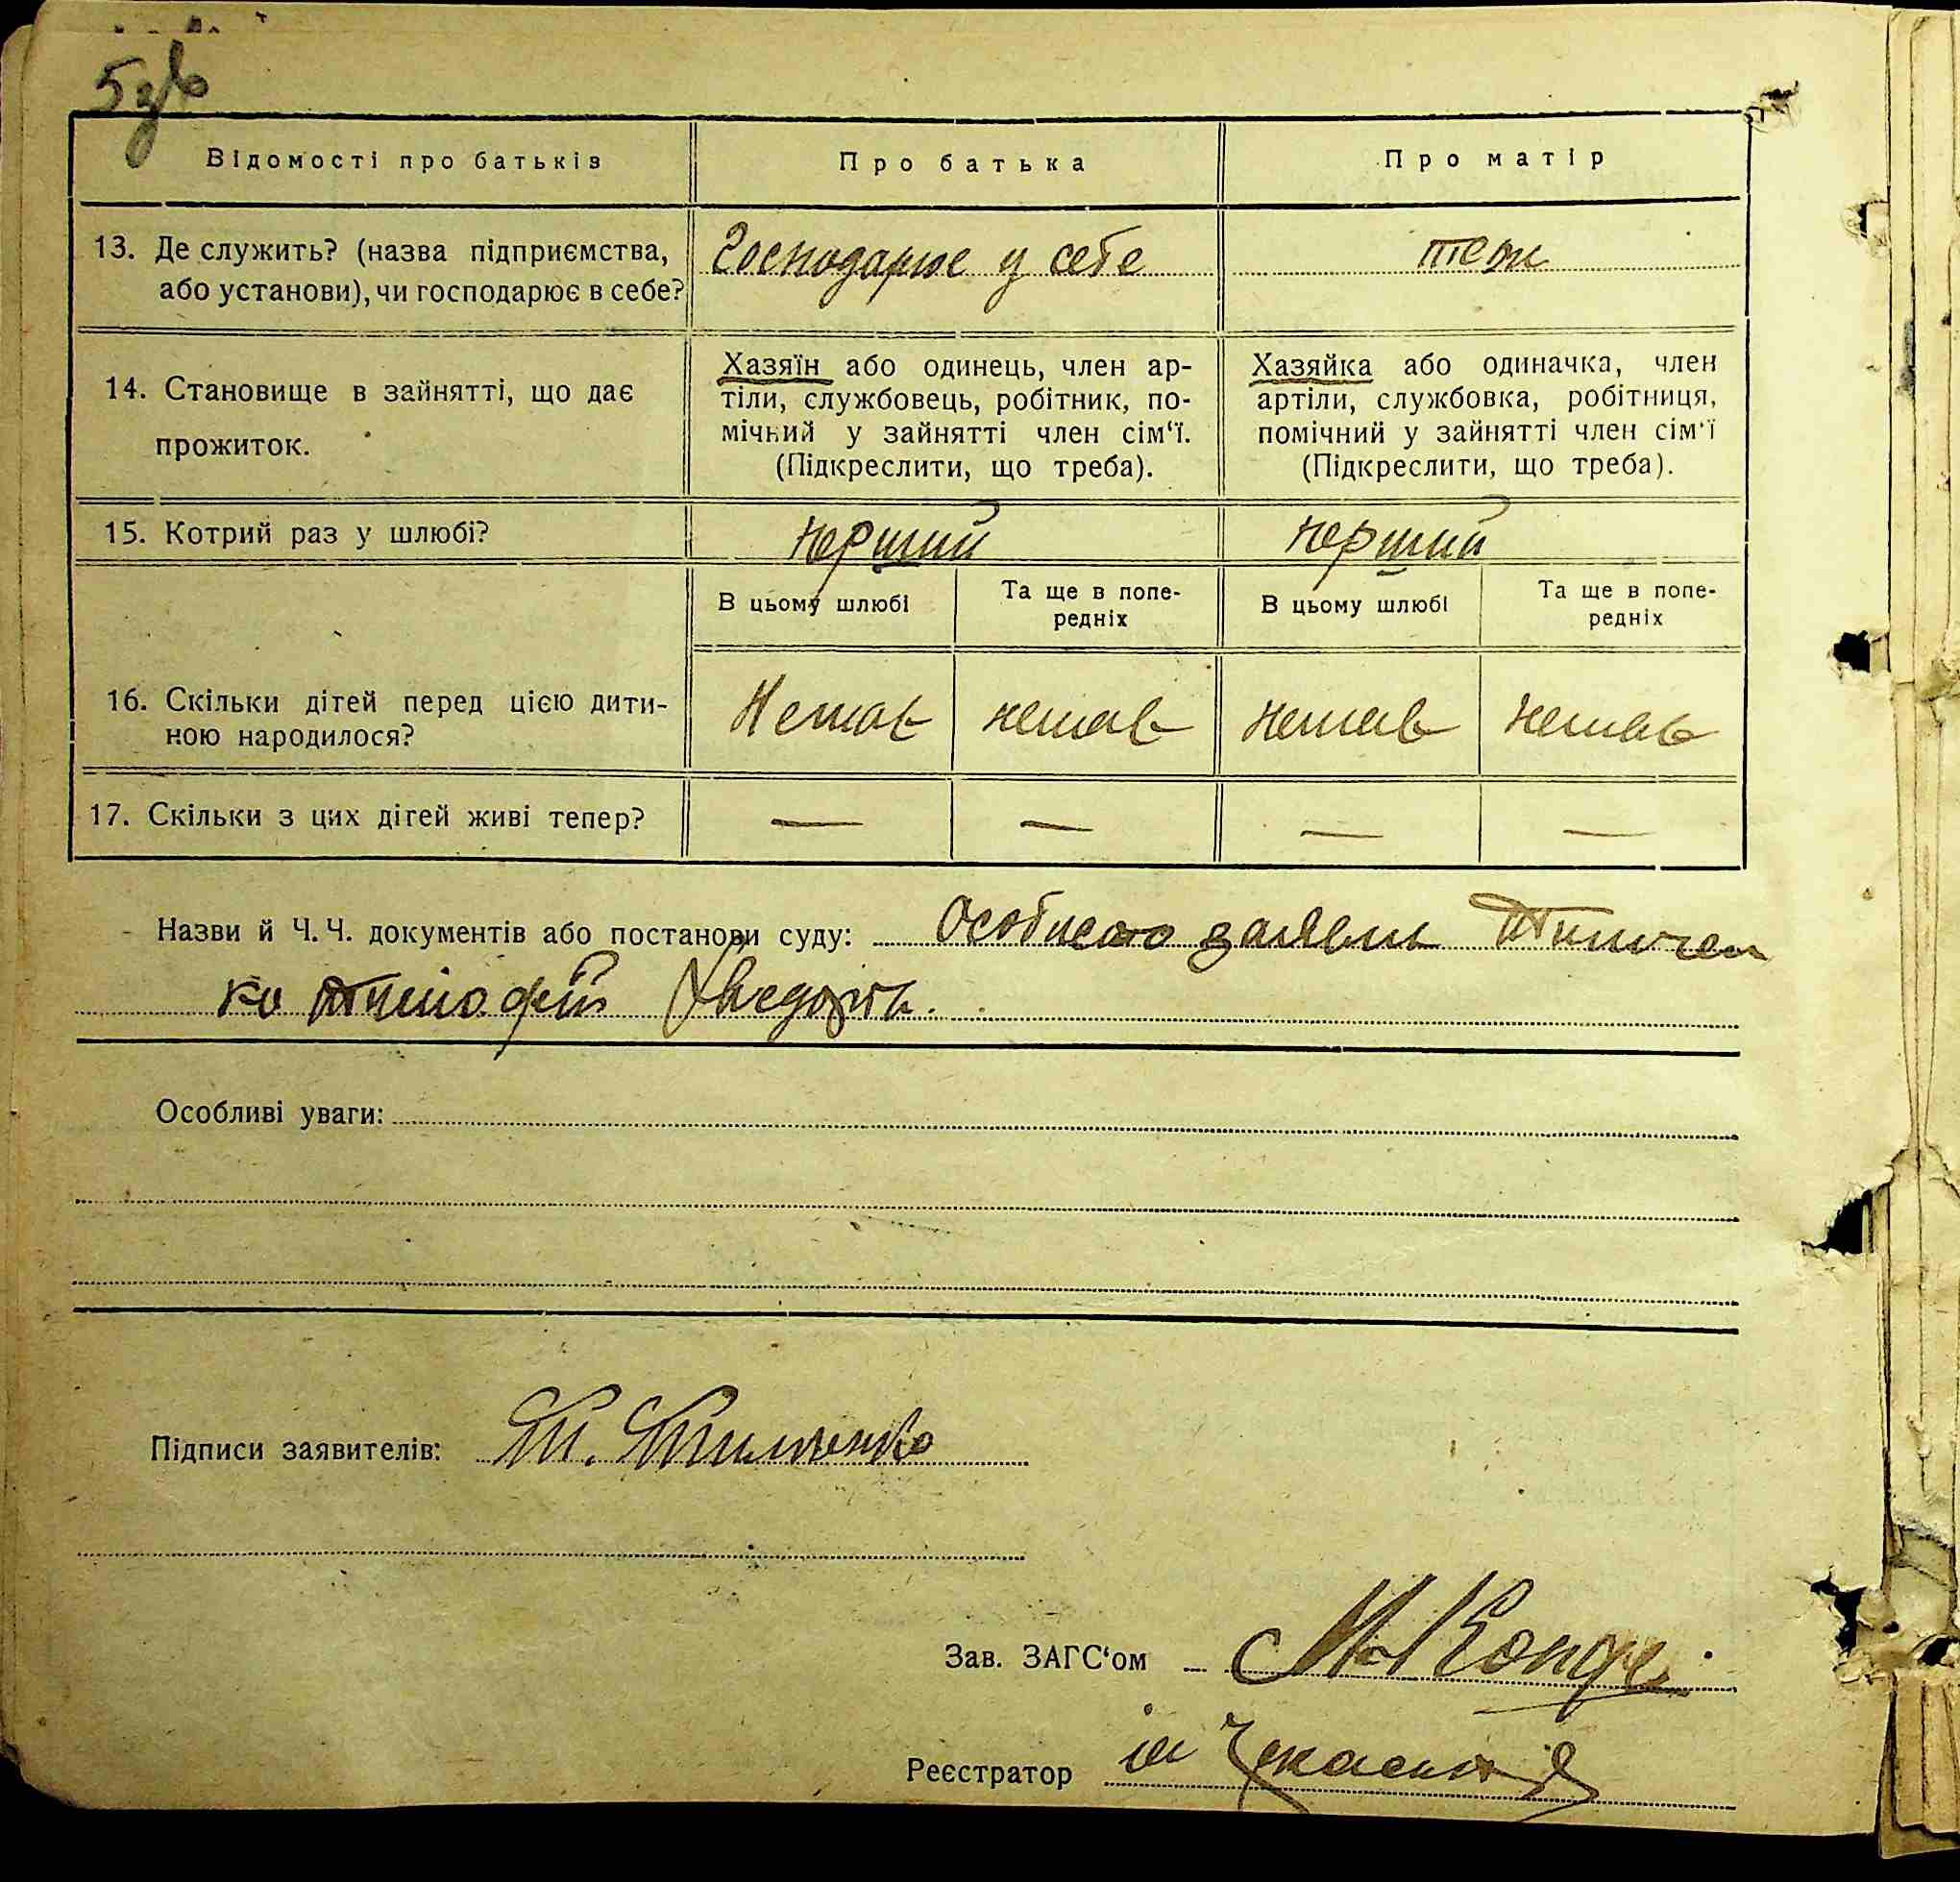 5зв
Відомості про батьків
Про батька
Про матір
13. Де служить? (назва підприємства,
або установи), чи господарює в себе?
Господарює у себе
теж
14. Становище в зайнятті, що дає
прожиток.
Хазяїн або одинець, член ар-
тіли, службовець, робітник, по-
мічний у зайнятті член сім‘ї.
(Підкреслити, що треба).
Хазяйка або одиначка, член
артіли, службовка, робітниця,
помічний у зайнятті член сім‘ї
(Підкреслити, що треба).
15. Котрий раз у шлюбі?
перший
перший
В цьому шлюбі
Та ще в попе-
редніх
В цьому шлюбі
Та ще в попе-
редніх
16. Скільки дітей перед цією дити-
ною народилося?
Немає
немає
немає
немає
17. Скільки з цих дітей живі тепер?
—
—
—
—
Назви й Ч. Ч. документів або постанови суду: Особисто заявив Тимчен
ко Тимофій
Особливі уваги:
Підписи заявителів: Т. Тимченко
Зав. ЗАГС‘ом
Реєстратор